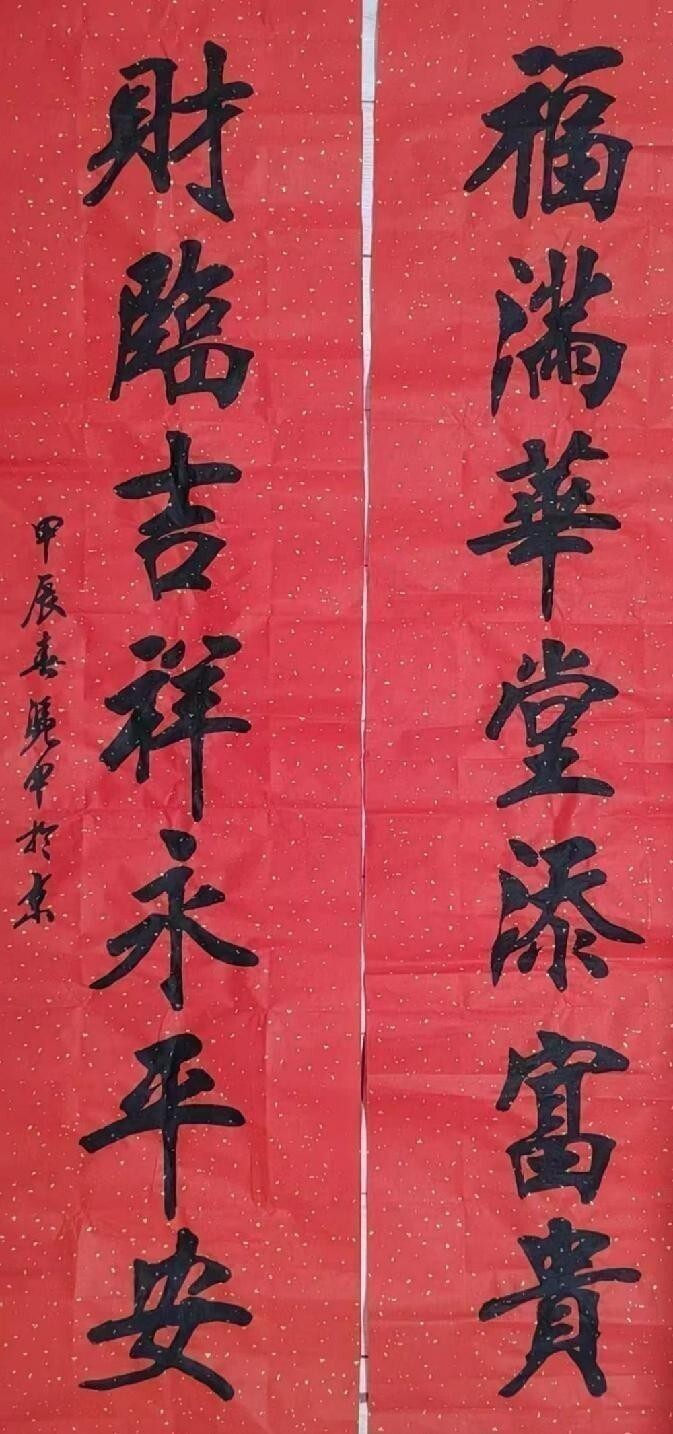 福滿華堂添富貴
財臨吉祥永平安
甲辰春 甲於京